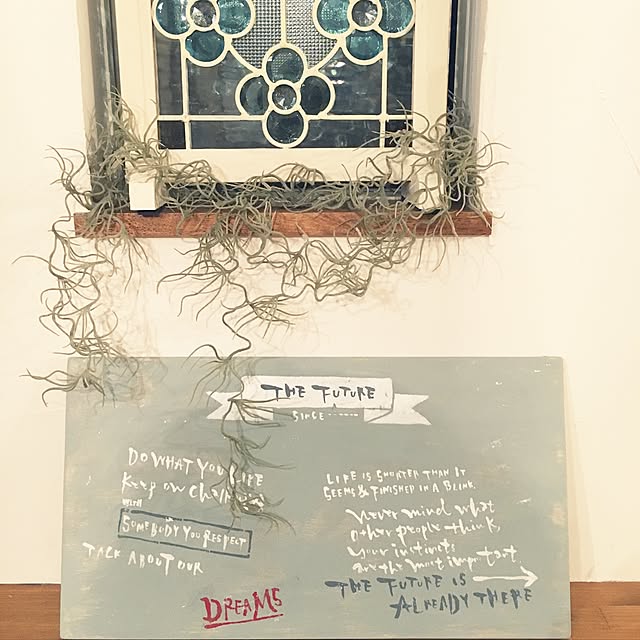 THE FUTURE
SINCE ------
DO WHAT YOU LIFE
Keep on
WITH
SOMEBODY YOU RESPECT
TALK ABOUT OUR
DREAMS
LIFE IS SHORTER THAN IT
SEEMS & FINISHED IN A BLINK
Never mind what
other people think,
your instincts
are the most important
THE FUTURE IS
ALREADY THERE